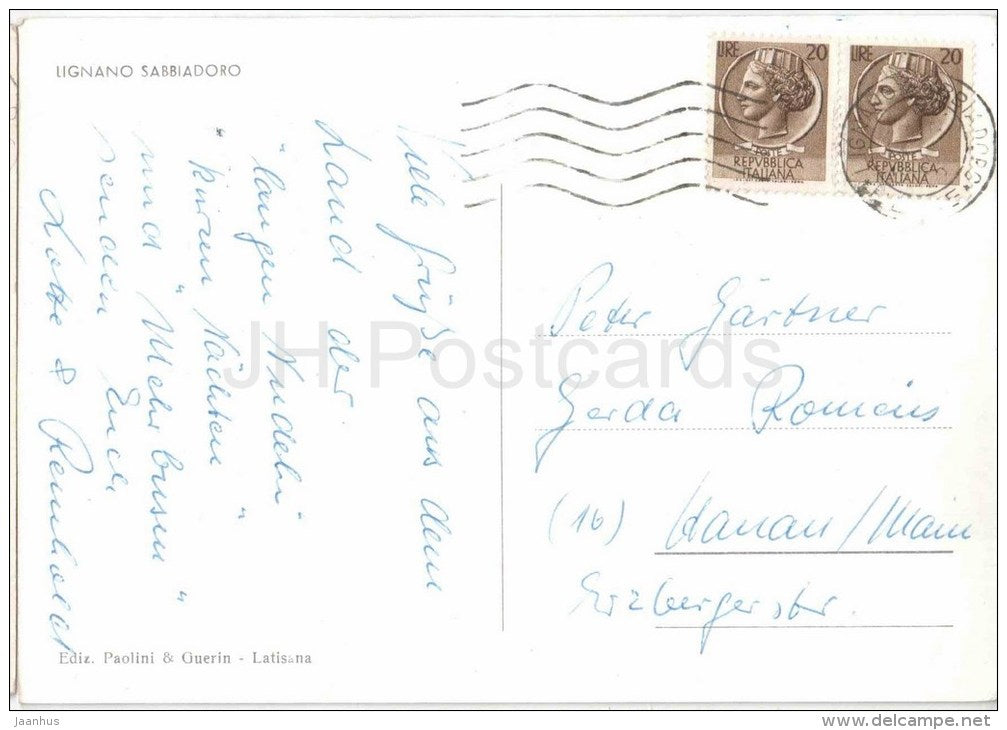 LIGNANO SABBIADORO
LIRE 20
POSTE
REPVBBLICA
ITALIANA
LIRE 20
POSTE
REPVBBLICA
ITALIANA
Viele Grüße aus dem
Land der
"langen Nudeln"
"kurzen Nächten"
und "Mehrbusen"
senden Euch
Lotte & Reinhold
Peter Gärtner
Gerda Romeis
(16) Hanau/Main
Erzbergerstr.
Ediz. Paolini & Guerin - Latisana
JH Postcards
Jaanhus
www.delcampe.net